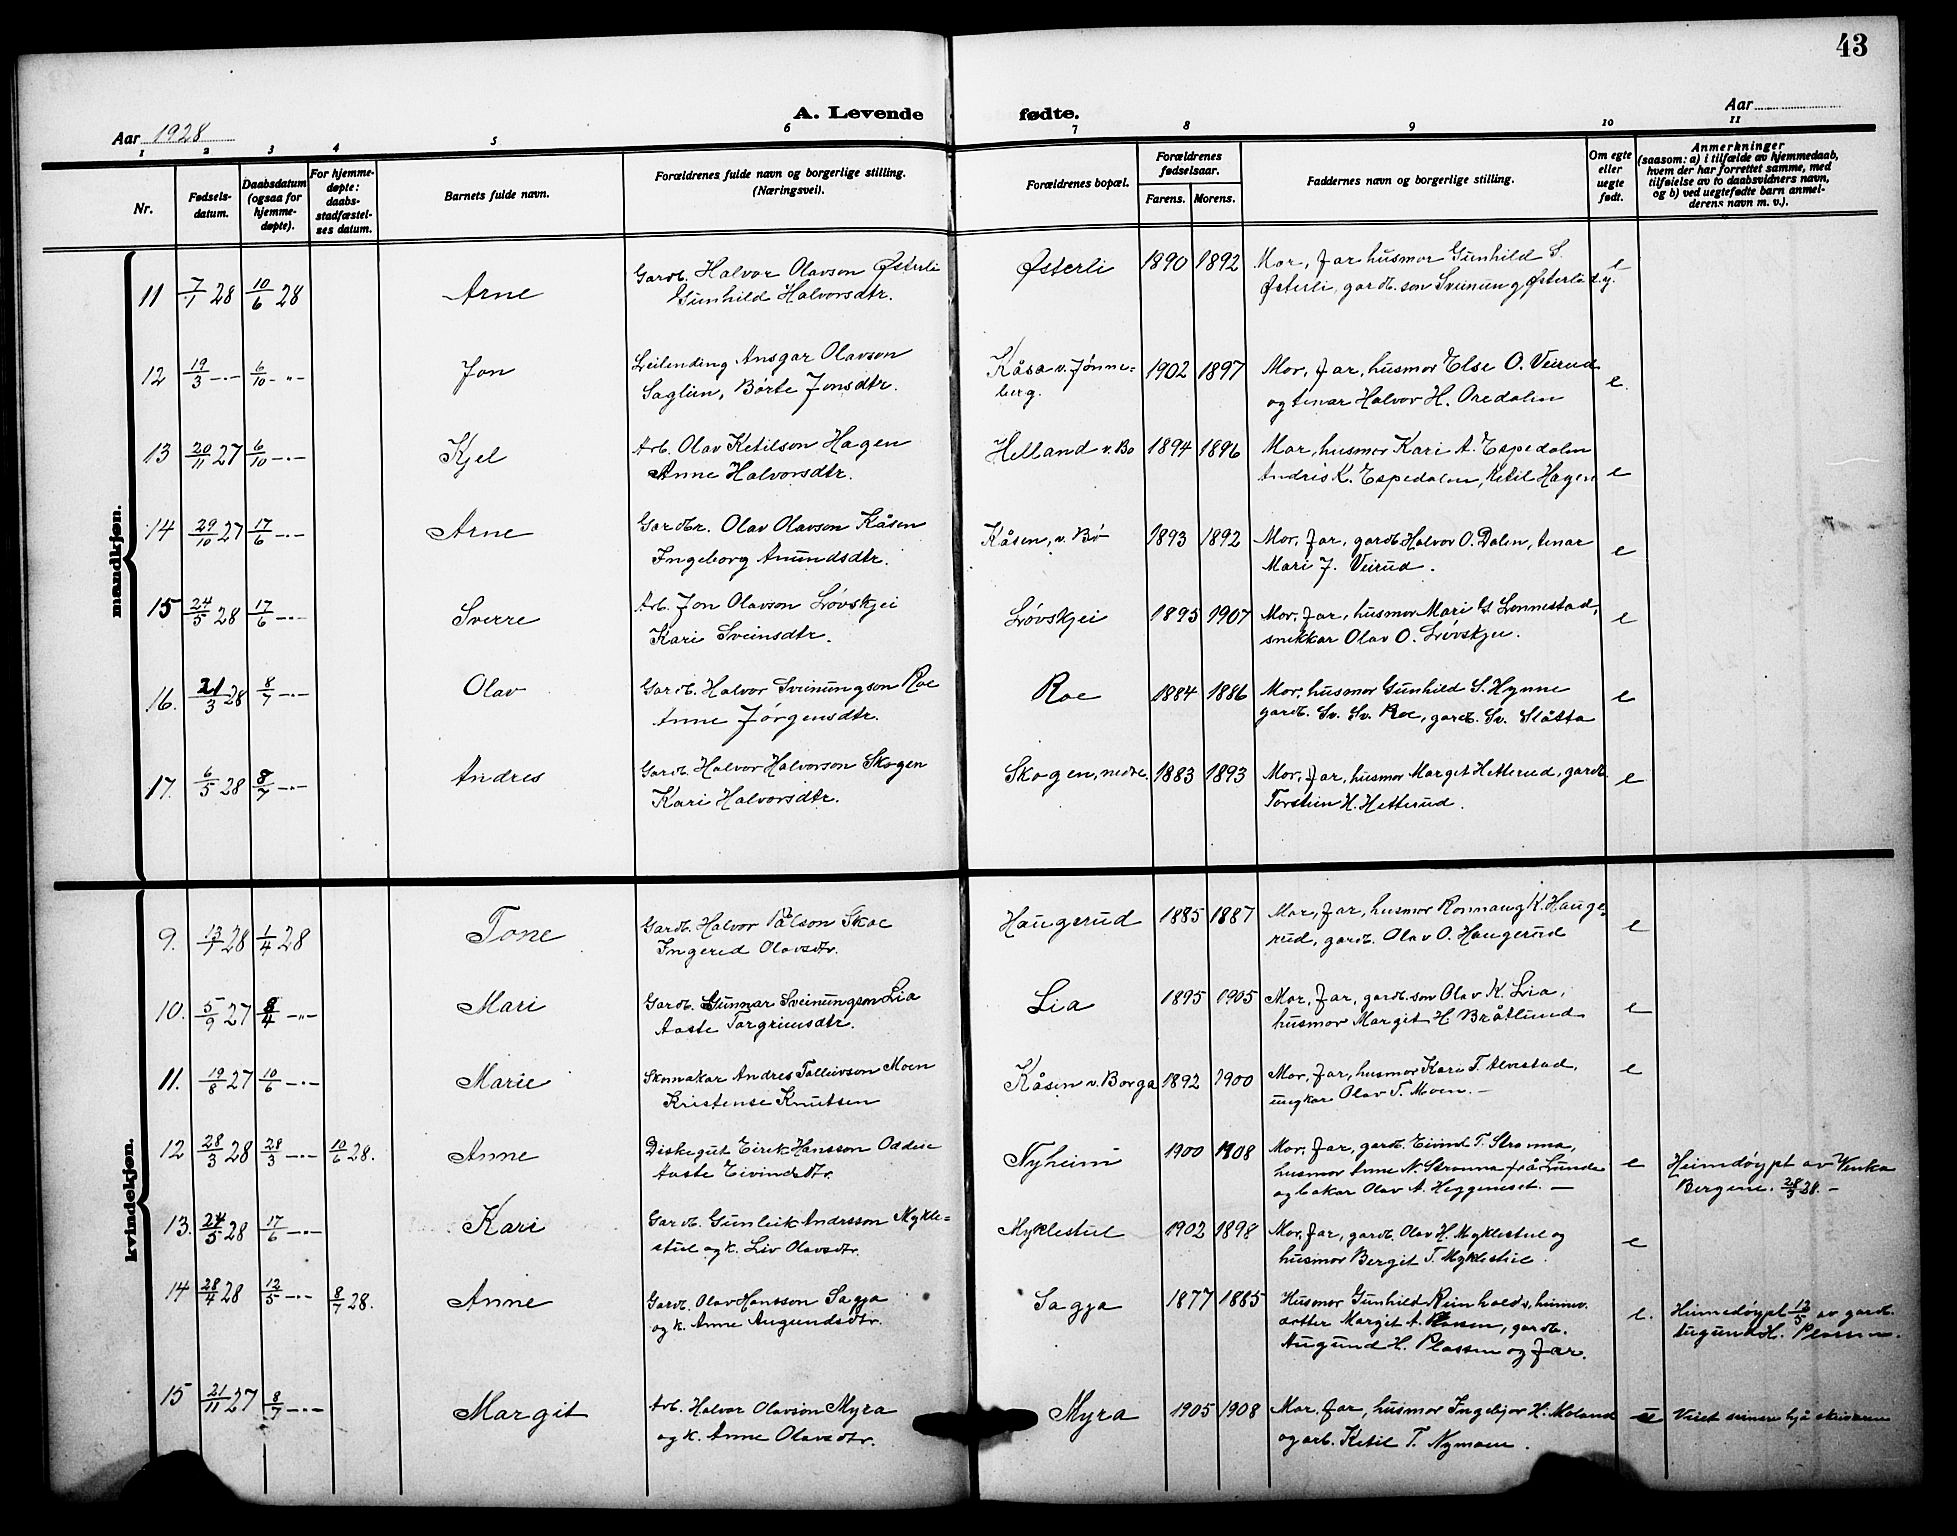 43
A. Levende fødte.
Aar 1928
Aar
1 2 3 4 5 6 7 8 9 10 11
Nr.
Fødsels-
datum.
Daabsdatum
(ogsaa for
hjemme-
døpte).
For hjemme-
døpte:
daabs-
stadfæstel-
ses datum.
Barnets fulde navn.
Forældrenes fulde navn og borgerlige stilling.
(Næringsvei).
Forældrenes bopæl.
Forældrenes
fødselsaar.
Farens. Morens.
Faddernes navn og borgerlige stilling.
Om egte
eller
uegte
født.
Anmerkninger
(saasom: a) i tilfælde av hjemmedaab,
hvem der har forrettet samme, med
tilføielse av to daabsvidners navn,
og b) ved uegtefødte barn anmel-
derens navn m. v.).
mandkjøn.
11 7/1 28 10/6 28 Arne
Gardb. Halvor Olavson Østerli
Gunhild Halvorsdtr.
Østerli 1890 1892
Mor, far husmor Gunhild S.
Østerli, gardb. son Sveinung Østerli d.y.
e
12 19/3 -.- 6/10 -"- Jon
Leilending Ansgar Olavson
Saglien, Børte Jonsdtr.
Kåsa v. Jønne-
berg.
1902 1897
Mor, far, husmor Else O. Veirud
og tenar Halvor H. Oredalen
e.
13 20/11 27 6/10 -.- Kjel
Arb. Olav Ketilson Hagen
Anne Halvorsdtr.
Helland v. Bø 1894 1896
Mor, husmor Kari A. Espedalen
Andris K. Espedalen, Ketil Hagen
e
14 29/10 27 17/6 -.- Arne
Gardbr. Olav Olavson Kåsen
Ingeborg Anundsdtr.
Kåsen, v. Bø 1893 1892
Mor, far, gardb. Halvor O. Dalen, tenar
Mari J. Veirud.
e
15 24/5 28 17/6 -.- Sverre
Arb. Jon Olavson Løvskjei
Kari Sveinsdtr.
Løvskjei 1895 1907
Mor, far, husmor Mari G. Lonnestad,
snikkar Olav O. Løvskjei.
e
16. 21/3 28 8/7 -.- Olav
Gardb. Halvor Sveinungson Roe
Anne Jørgensdtr.
Roe 1884 1886
Mor, husmor Gunhild S. Hynne
gardb. Sv. Sv. Roe, gardb. Sv. Slåtta
e
17. 6/5 28 8/7 -.- Andres
Gardb. Halvor Halvorson Skogen
Kari Halvorsdtr.
Skogen, nedre 1883 1893
Mor, far, husmor Marget Hetterud, gardb.
Torstein H. Hetterud.
e
kvindekjøn.
9. 13/1 28 1/4 28 Tone
Gardb. Halvor Pålson Skoe
Ingerid Olavsdtr.
Haugerud 1885 1887
Mor, far, husmor Ronnaug K. Hauge-
rud, gardb. Olav O. Haugerud
e
10. 5/9 27 8/4 -"- Mari
Gardb. Gunnar Sveinungson Lia
Aaste Torgrimsdtr.
Lia 1895 1905
Mor, far, gardb. son Olav K. Lia,
husmor Margit H. Bråtlund
e
11. 19/8 27 10/6 -.- Marie
Skomakar Andres Tolleivson Moen
Kristense Knutsen
Kåsen v. Borga 1892 1900
Mor, far, husmor Kari T. Alvestad,
ungkar Olav T. Moen. -
e
12 28/3 28 28/3 -.- 10/6 28. Anne
Eirik Hansson
Aaste Eivindsdtr.
Nyheim 1900 1908
Mor, far, gardb. Eivind T. Stranna,
husmor Anne N. Stranna frå Lunde
og bakar Olav A. Heggeneset. -
e
Heimdøypt av Venka
Bergene. 28/3 28. -
13. 24/5 28 17/6 -.- Kari
Gardb. Gunleik Andrsson Mykle-
stul og k. Liv Olavsdtr.
Myklestul 1902 1898
Mor, far, gardb. Olav H. Myklestul og
husmor Bergit T. Myklestul.
e
14 28/4 28 12/5 -.- 8/7 28. Anne
Gardb. Olav Hansson Sagja
og k. Anne Augundsdtr.
Sagja 1877 1885
Husmor Gunhild Reinholds,
dotter Margit A. Plassen, gardb.
Augund H. Plassen og far.
e.
Heimedøypt 12/5 av gardb.
Augund H. Plassen.
15 21/11 27 8/7 -.- Margit
Arb. Halvor Olavson Myra
og k. Anne Olavsdtr.
Myra 1905 1908
Mor, far, husmor Ingebjør H. Moland
og arb. Ketil T. Nymoen.
Viet seinere hjå skrivaren